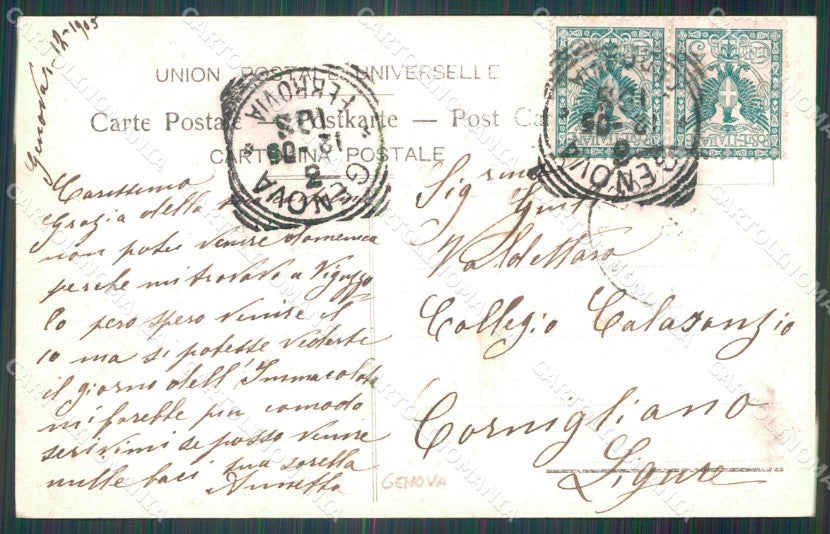 Genova 7-12-1905
UNION POSTALE UNIVERSELLE
Carte Postale — Postkarte — Post Ca
CARTOLINA POSTALE
GENOVA
FERROVIA
12-05
GENOVA
12-05
Carissimo
Grazia della
non potei venire domenica
perche mi trovavo a Viguzzo
Io pero spero venire il
10 ma si potesse vederte
il giorno dell' Immacolata
mi farebbe piu comodo
scrivimi se posso venire
mille baci tua sorella
Annetta
Sig
Valdettaro
Collegio Calasanzio
Cornigliano
Ligure
GENOVA
CARTOLINOMANIA